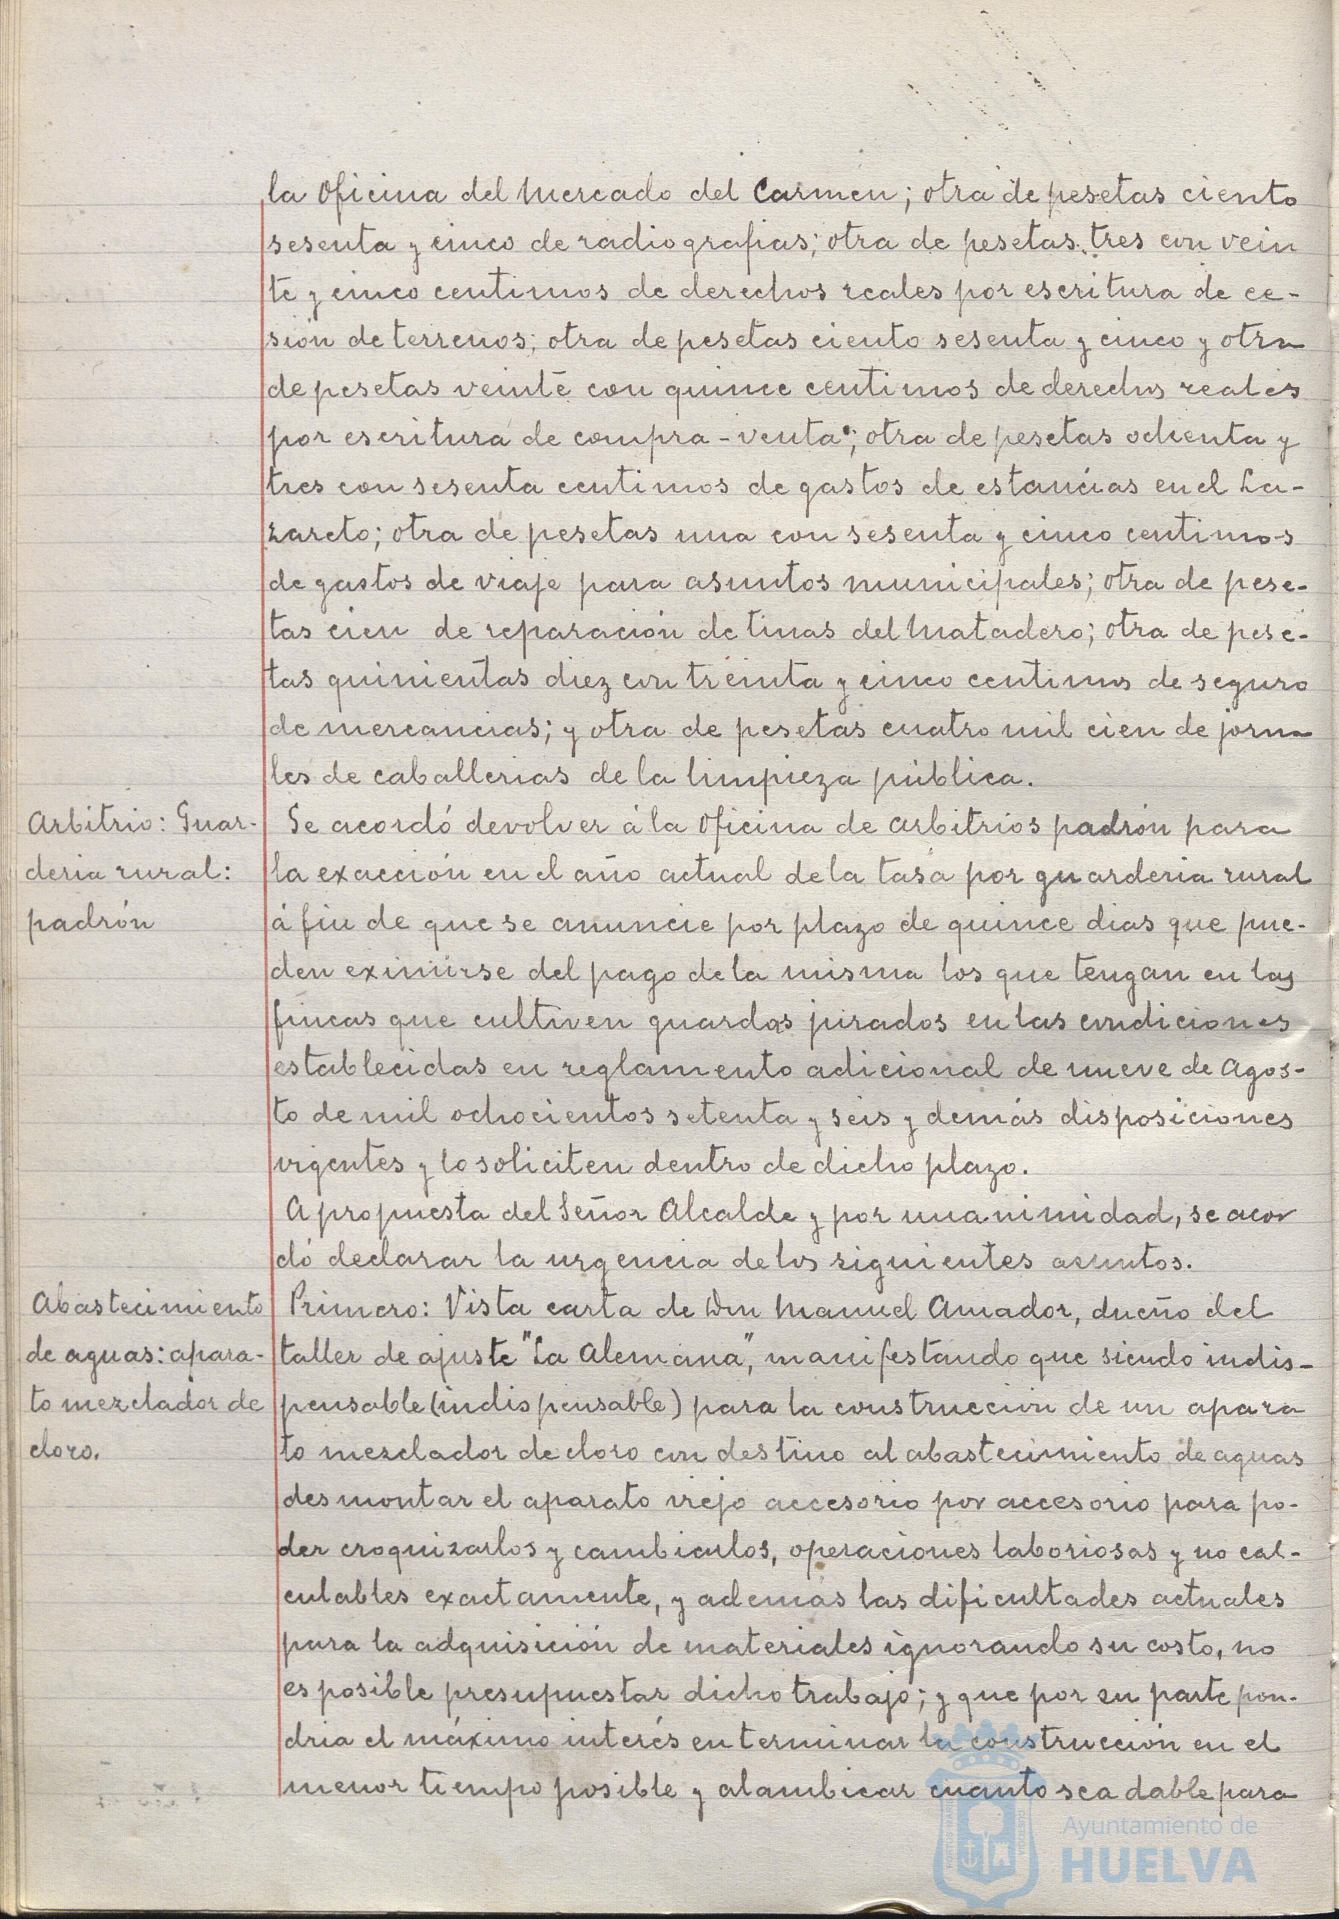 la Oficina del Mercado del Carmen; otra de pesetas ciento
sesenta y cinco de radiografias; otra de pesetas tres con vein
te y cinco centimos de derechos reales por escritura de ce-
sión de terrenos; otra de pesetas ciento sesenta y cinco y otra
de pesetas veinte con quince centimos de derechos reales
por escritura de compra-venta; otra de pesetas ochenta y
tres con sesenta centimos de gastos de estancias en el La-
zareto; otra de pesetas una con sesenta y cinco centimos
de gastos de viaje para asuntos municipales; otra de pese-
tas cien de reparación de tinas del Matadero; otra de pese-
tas quinientas diez con treinta y cinco centimos de seguro
de mercancias; y otra de pesetas cuatro mil cien de jorna
les de caballerias de la limpieza pública.
Arbitrio: Guar-
deria rural:
padrón
Se acordó devolver á la Oficina de arbitrios padrón para
la exacción en el año actual de la tasa por guarderia rural
á fin de que se anuncie por plazo de quince dias que pue-
den eximirse del pago de la misma los que tengan en las
fincas que cultiven guardas jurados en las condiciones
establecidas en reglamento adicional de nueve de Agos-
to de mil ochocientos setenta y seis y demás disposiciones
vigentes y lo soliciten dentro de dicho plazo.
A propuesta del Señor Alcalde y por unanimidad, se acor
dó declarar la urgencia de los siguientes asuntos.
Abastecimiento
de aguas: apara-
to mezclador de
cloro.
Primero: Vista carta de Don Manuel Amador, dueño del
taller de ajuste "La Alemana", manifestando que siendo indis-
pensable (indispensable) para la construcción de un apara
to mezclador de cloro con destino al abastecimiento de aguas
desmontar el aparato viejo accesorio por accesorio para po-
der croquizarlos y cambiarlos, operaciones laboriosas y no cal-
culables exactamente, y además las dificultades actuales
para la adquisición de materiales ignorando su costo, no
es posible presupuestar dicho trabajo; y que por su parte pon-
dria el máximo interés en terminar la construcción en el
menor tiempo posible y alambicar cuanto sea dable para
Ayuntamiento de
HUELVA